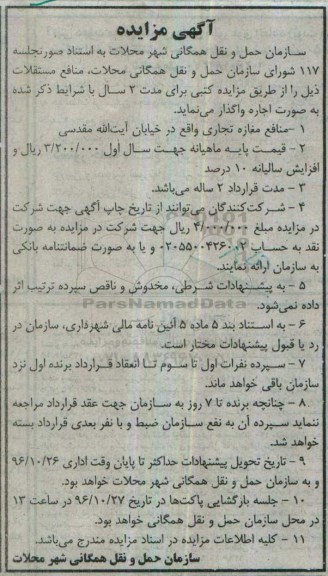 آگهی مزایده
سازمان حمل و نقل همگانی شهر محلات به استناد صورتجلسه
۱۱۷ شورای سازمان حمل و نقل همگانی محلات، منافع مستقلات
ذیل را از طریق مزایده کتبی برای مدت ۲ سال با شرایط ذکر شده
به صورت اجاره واگذار می‌نماید.
۱ -منافع مغازه تجاری واقع در خیابان آیت‌الله مقدسی
۲ - قیمت پایه ماهیانه جهت سال اول ۳/۲۰۰/۰۰۰ ریال و
افزایش سالیانه ۱۰ درصد
۳ - مدت قرارداد ۲ ساله می‌باشد.
۴ - شرکت‌کنندگان می‌توانند از تاریخ چاپ آگهی جهت شرکت
در مزایده مبلغ ۴/۰۰۰/۰۰۰ ریال جهت شرکت در مزایده به صورت
نقد به حساب و یا به صورت ضمانتنامه بانکی
به سازمان ارائه نمایند.
۵ - به پیشنهادات شرطی، مخدوش و ناقص سپرده ترتیب اثر
داده نمی‌شود.
ParsNamadData
۶ - به استناد بند ۵ ماده ۵ آئین نامه مالی شهرداری، سازمان در
رد یا قبول پیشنهادات مختار است.
۷ - سپرده نفرات اول تا سوم تا انعقاد قرارداد برنده اول نزد
سازمان باقی خواهد ماند.
۸ - چنانچه برنده تا ۷ روز به سازمان جهت عقد قرارداد مراجعه
ننماید سپرده آن به نفع سازمان ضبط و با نفر بعدی قرارداد بسته
خواهد شد.
۹ - تاریخ تحویل پیشنهادات حداکثر تا پایان وقت اداری ۹۶/۱۰/۲۶
و به سازمان حمل و نقل همگانی محلات خواهد بود.
۱۰ - جلسه بازگشایی پاکت‌ها در تاریخ ۹۶/۱۰/۲۷ در ساعت ۱۳
در محل سازمان حمل و نقل همگانی خواهد بود.
۱۱ - کلیه اطلاعات مزایده در اسناد مزایده مندرج می‌باشد.
سازمان حمل و نقل همگانی شهر محلات